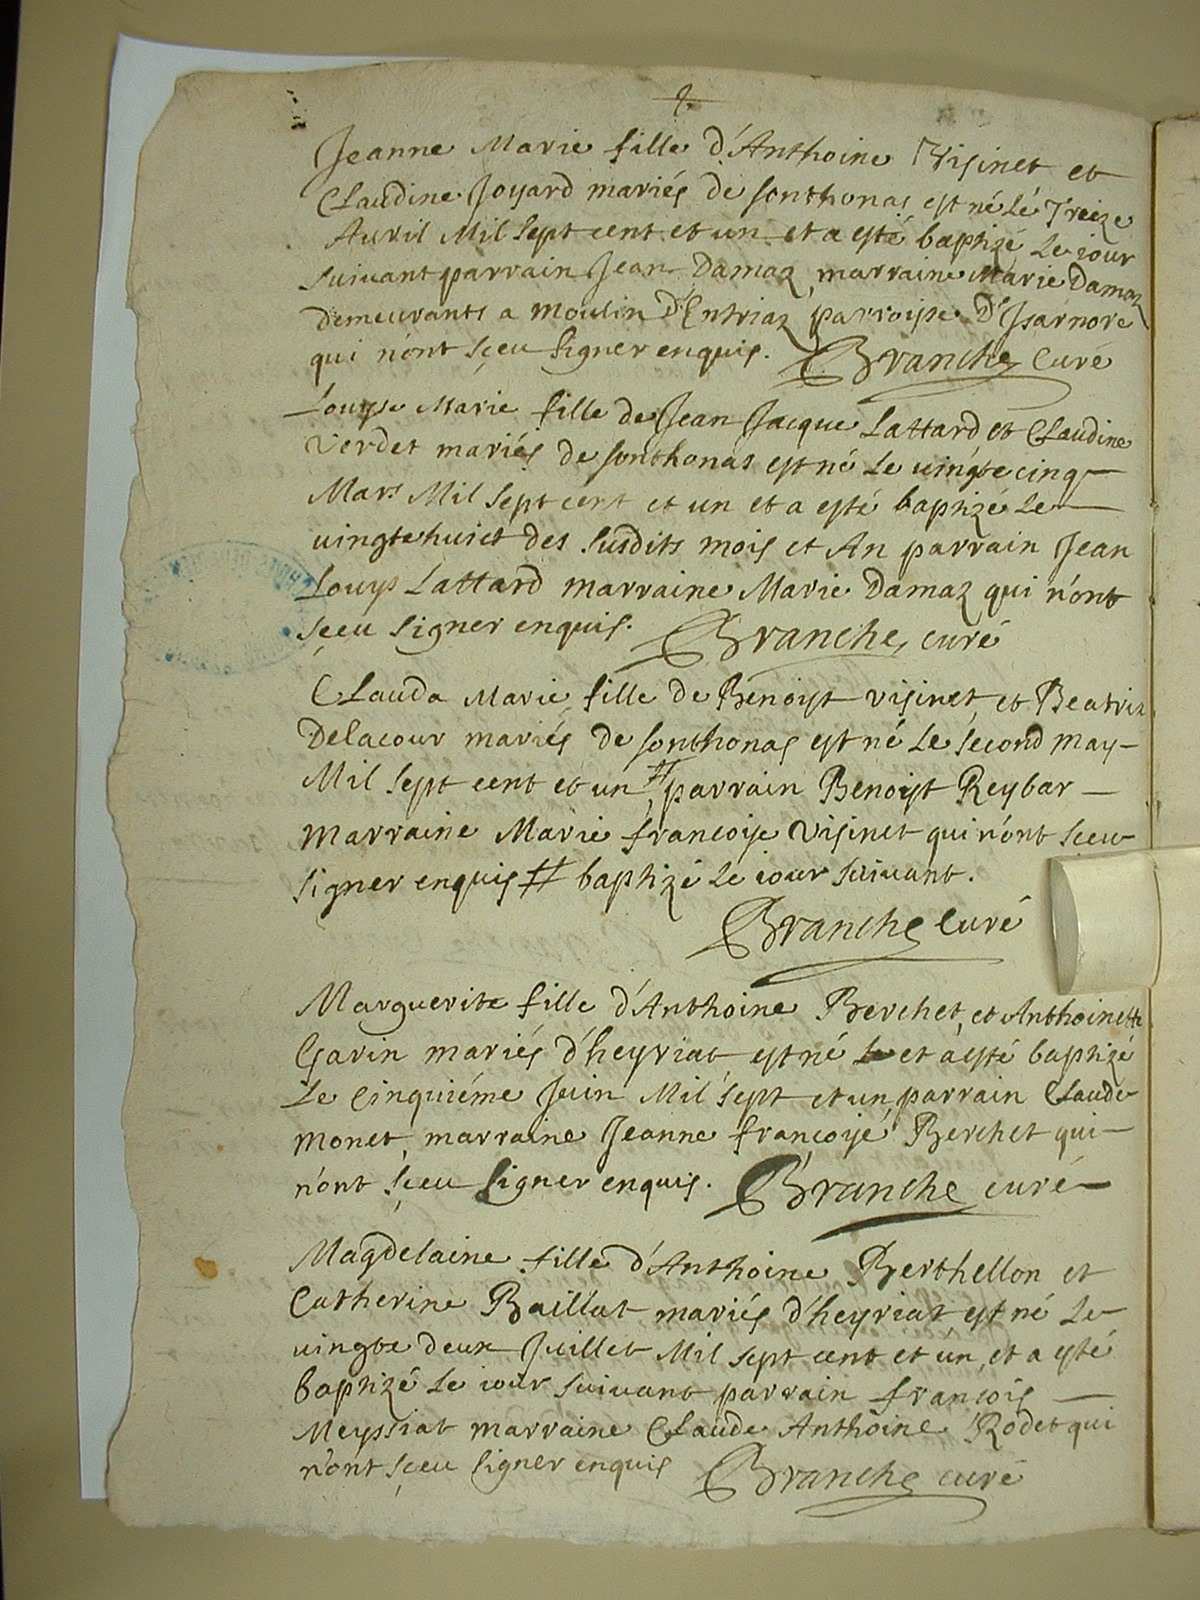 Jeanne Marie fille d'Anthoine Visinet et
Claudine Joyard mariés de sonthonas est né le Treize
Auril Mil sept cent et un et a esté baptizé le iour
suiuant parrain Jean Damaz marraine Marie Damaz
demeurants a Moulin D'Entriaz parroisse D'Isarnore
qui n'ont sçeu signer enquis. Branche Curé
Louyse Marie fille de Jean Jacque Lattard et Claudine
Verdet mariés de sonthonas est né le uingte cinq
Mars Mil sept cent et un et a esté baptizé le
uingte huict des susdits mois et An parrain Jean
Louys Lattard marraine Marie Damaz qui n'ont
sçeu signer enquis. Branche, curé
Clauda Marie fille de Benoist Visinet et Beatrix
Delacour mariés de sonthonas est né le second may
Mil sept cent et un # parrain Benoist Reybar
marraine Marie francoise Visinet qui n'ont sceu
signer enquis # baptizé le iour suiuant.
Branche Curé
Marguerite fille d'Anthoine Berchet, et Anthoinette
Garin mariés d'heyriat est né et a esté baptizé
Le Cinquiéme Juin Mil sept et un parrain Claude
Monet, marraine Jeanne francoise Berchet qui
n'ont sçeu signer enquis. Branche curé
Magdelaine fille d'Anthoine Berthellon et
Catherine Baillat mariés d'heyriat est né le
uingte deux Juillet Mil sept cent et un, et a esté
baptizé le iour suiuant parrain francois
Meyssiat marraine Claude Anthoine Rodet qui
n'ont sçeu signer enquis Branche curé